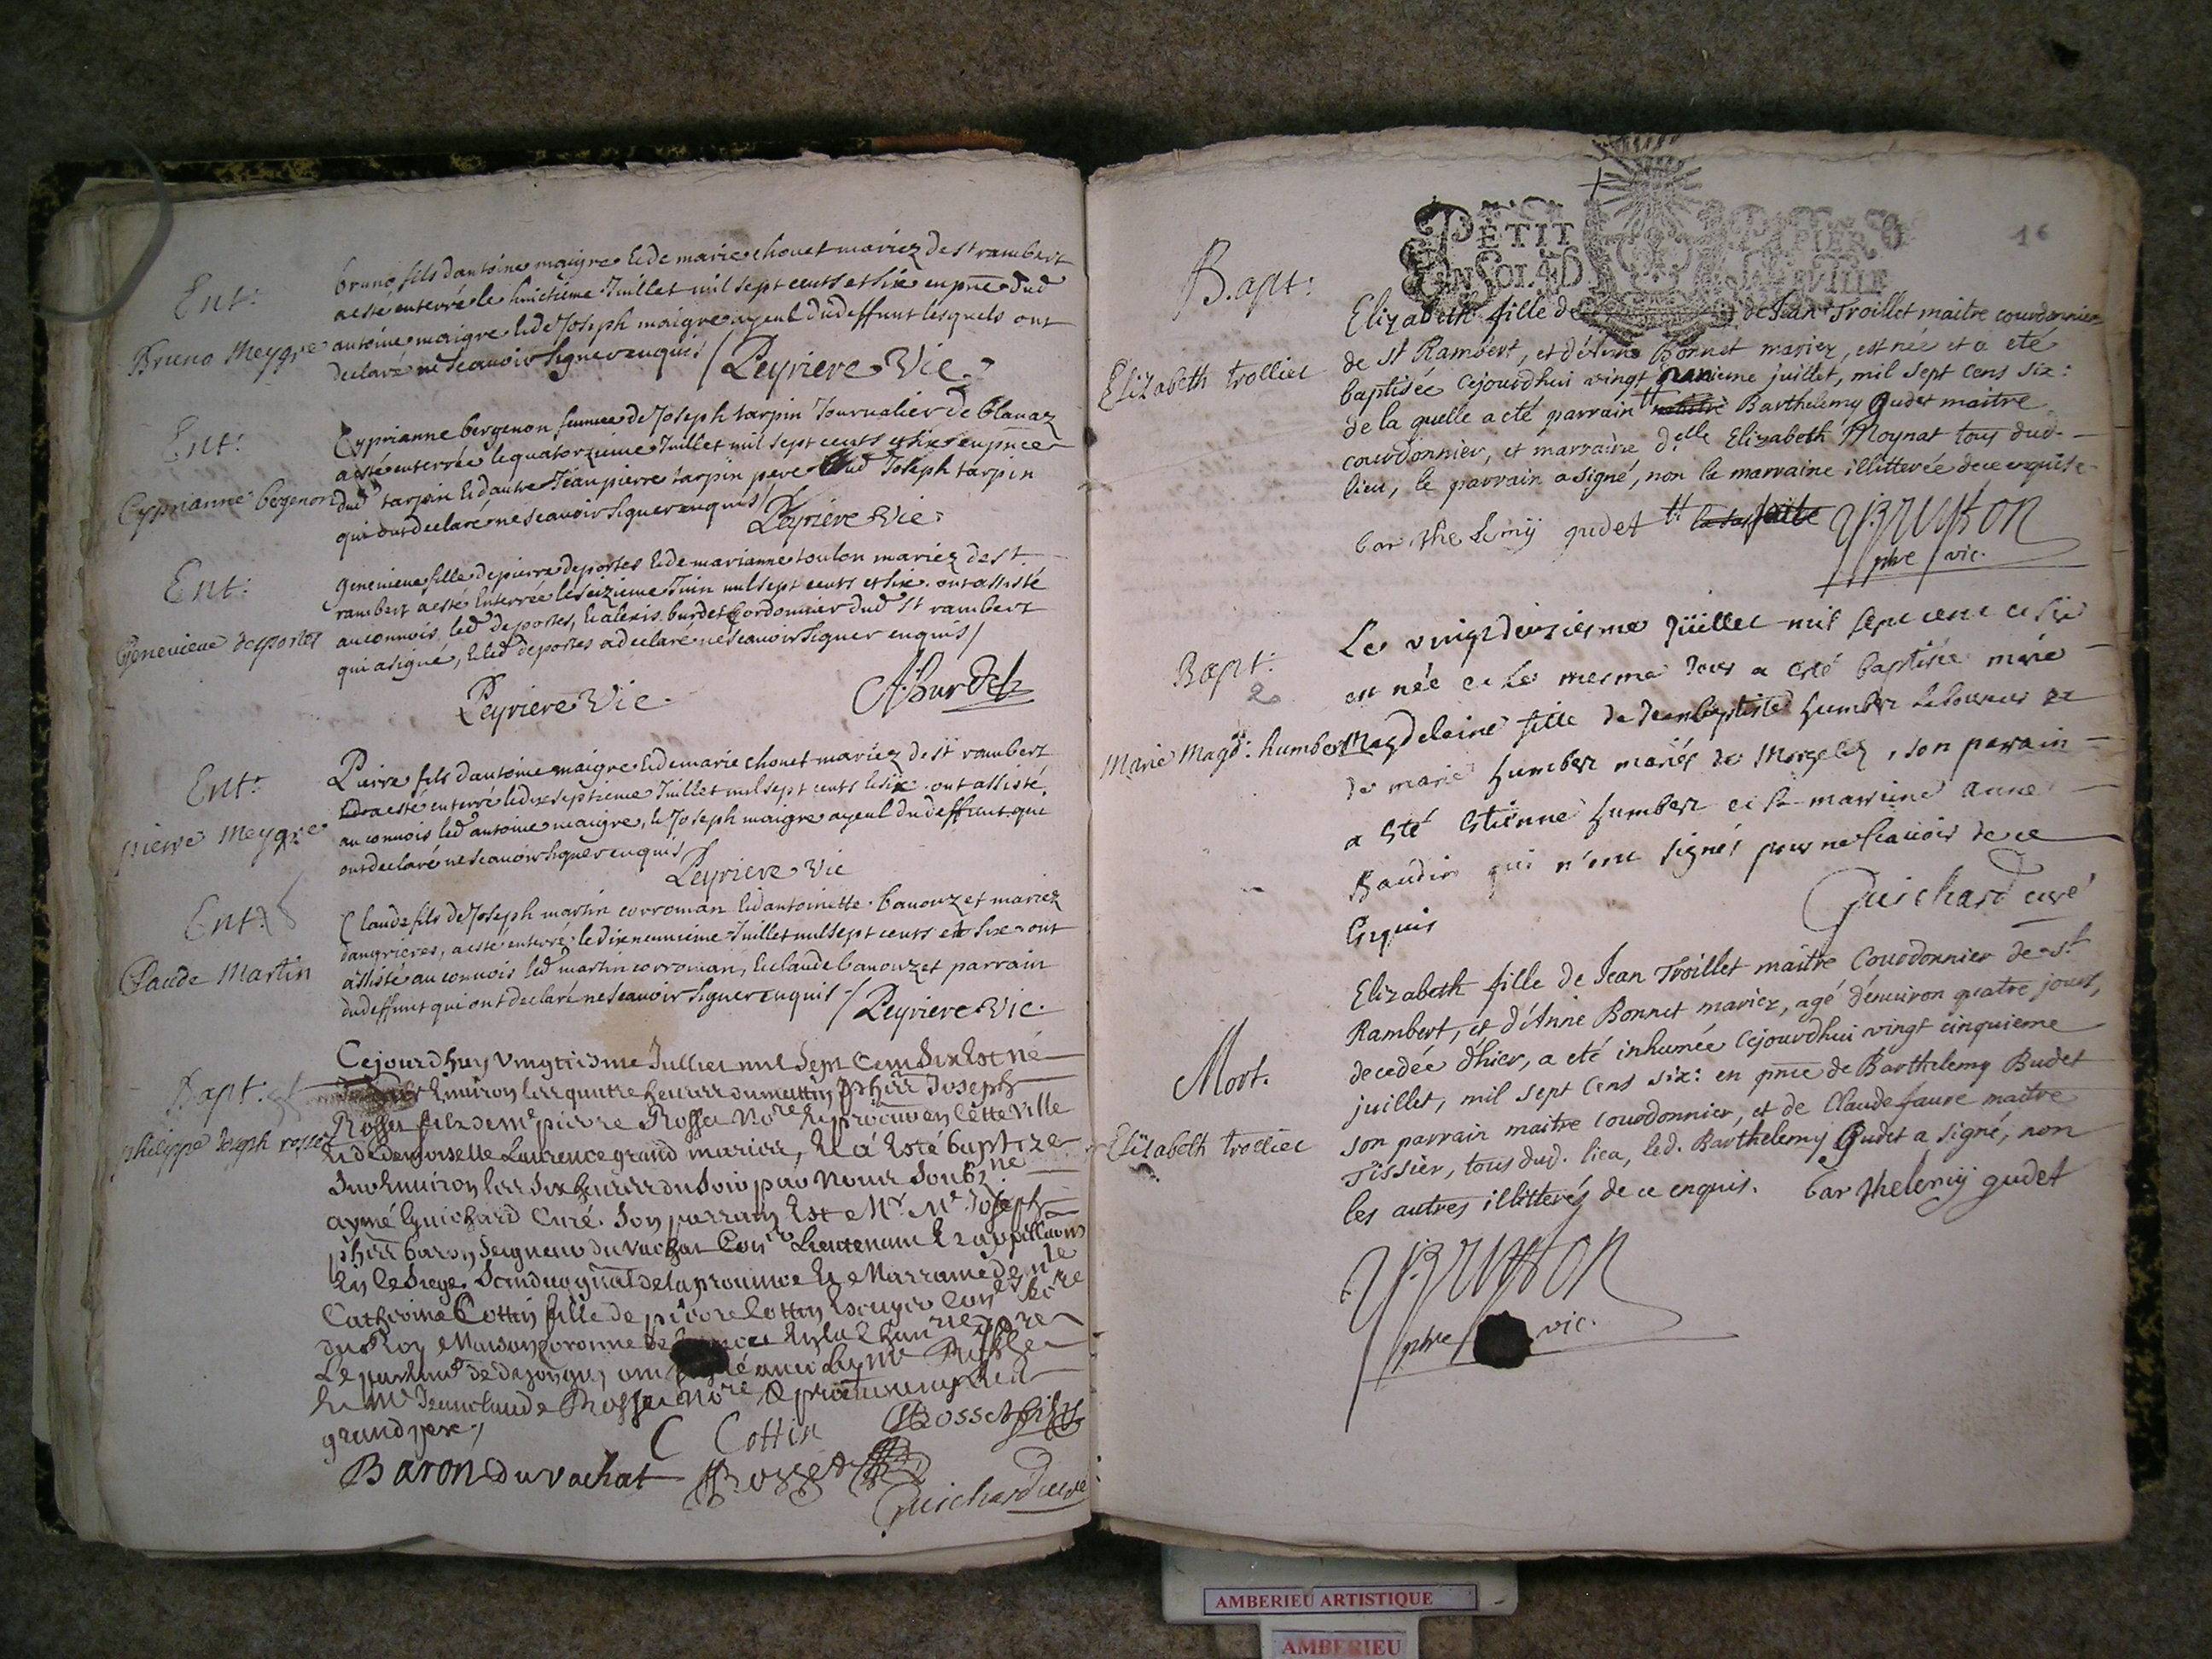 Ent:
Bruno Meygre
bruno fils dantoine maigre & de marie chouet mariez de st rambert
a esté enterré le huictième Juillet mil sept cents et six en pnce dud
antoine maigre & de Joseph maigre ayeul dud deffunt lesquels ont
declaré ne scauoir signer enquis / Peyriere Vic.
Ent:
Cyprianne bergenon
Cyprianne bergenon femme de Joseph tarpin Journalier de blanaz
a esté enterrée le quatorzieme Juillet mil sept cents et six en pnce
dud tarpin & dautre Jean pierre tarpin pere dud Joseph tarpin
qui ont declaré ne scauoir signer enquis / Peyriere Vic.
Ent:
Geneuieue desportes
geneuieue fille de pierre deportes & de marianne toulon mariez de st
rambert a esté enterrée le seizieme Juin mil sept cents et six. ont assisté
au connois led deportes, & alexis burdet Cordonnier dud st rambert
qui a signé, & led deportes a declaré ne scauoir signer enquis /
Peyriere Vic. A burdet
Ent:
pierre Meygre
Pierre fils dantoine maigre & de marie chouet mariez de st rambert
a esté enterré le dix septieme Juillet mil sept cents & six. ont assisté
au connois led antoine maigre, & Joseph maigre ayeul du deffunt qui
ont declaré ne scauoir signer enquis /
Peyriere Vic
Ent:
Claude Martin
Claude fils de Joseph martin corroman & dantoinette banouzet mariez
dangrieres, a esté enterré le dix neuuieme Juillet mil sept cents et six ont
assisté au connois led martin corroman, & claude banouzet parrain
du deffunt qui ont declaré ne scauoir signer enquis / Peyriere Vic.
Bapt:
philippe Joseph rosset
Cejourdhuy vingtiesme Jullier mil Sept Cent Six Est né
Enuiron les quatre heures du mattin phirr Joseph
Rosset filz de me pierre Rosset No.re & procur en cette ville
& de demoiselle Laurence grand marier, & a Esté baptize
Sur Enuiron les Six heures du Soir par nous Soubz.ne
aymé Guichard Curé. Son parrain Est Mr. Me Joseph
phirr baron Seigneur du vachat Con.r Lieutenant
En le Siege de la prouince & Marraine de.lle
Catherine Cottin fille de pierre Cottin Escuyer Con.r
du Roy Maison Coronne de
Le parlem.t de ont signé auec led me Rosset
& me Jean claude Rosset No.re & procureur
grand pere /
C Cottin Rosset filz
Baron du vachat Rosset
Guichard curé
PETIT PAPIER
16
Bapt:
Elizabeth trollier
Elizabeth fille de de Jean Troillet maitre courdonnier
de St Rambert, et d'Anne Bonnet mariez, est née et a eté
baptisée cejourdhui vingt unieme juillet, mil sept cens six:
de la quelle a eté parrain tt Barthelemy Gudet maitre
courdonnier, et marraine d.elle Elizabeth Moynat tous dud.
lieu, le parrain a signé, non la marraine illitterée de ce enquise.
bar the lemij gudet tt
pbre / vic.
Bapt:
2
Marie Magd: humbert
Le vingt deuxiesme Jüillet mil sept cent et six
est née et le mesme Jour a esté baptisée marie
Magdelaine fille de Jean baptiste humbert laboureur et
de marie humbert mariés de Morgelaz, son parrain
a été Etienne humbert et la marraine Anne
Baudin qui n'ont signés pour ne scauoir de ce
Enquis
Guichard curé
Mort.
Elizabeth trollier
Elizabeth fille de Jean Troillet maitre Courdonnier de st
Rambert, et d'Anne Bonnet mariez, agé d'enuiron quatre jours,
decedée d'hier, a eté inhumée cejourdhui vingt cinquieme
juillet, mil sept cens six: en pnce de Barthelemy Gudet
son parrain maitre courdonnier, et de Claude faure maitre
Tissier, tous dud. lieu, led. Barthelemy Gudet a signé, non
les autres illitterés de ce enquis. bar thelemij gudet
pbre / vic.
AMBERIEU ARTISTIQUE
AMBERIEU